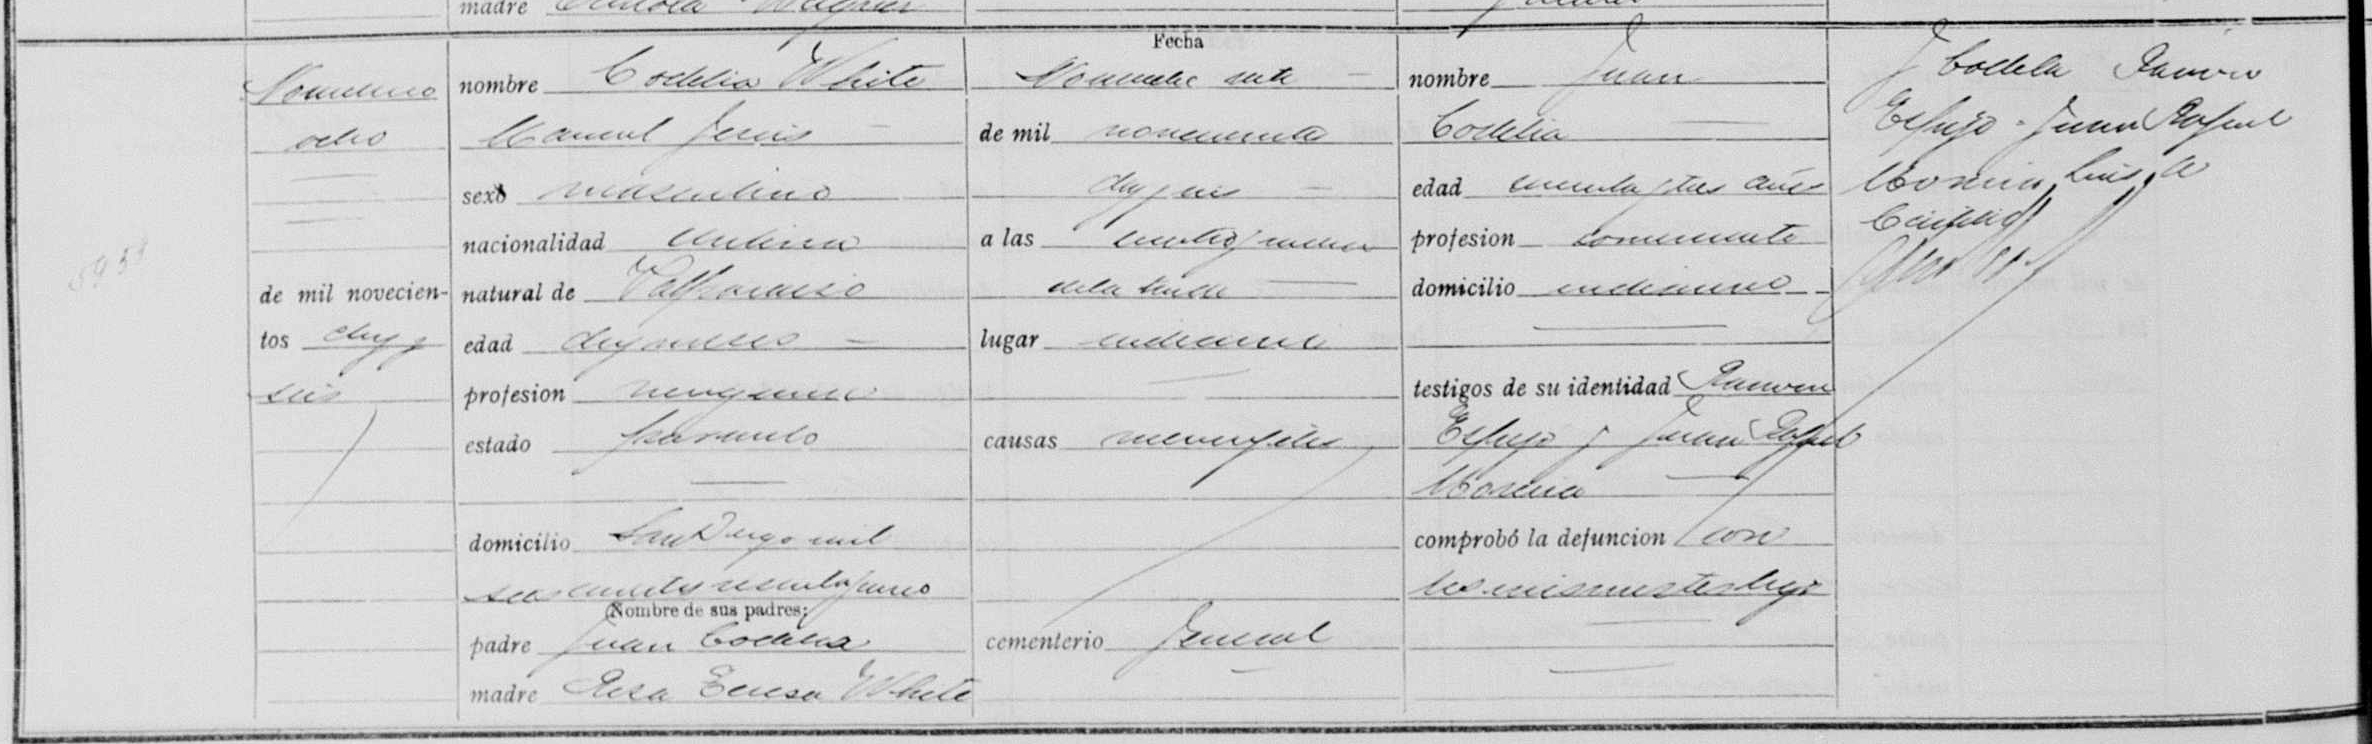 madre
Fecha
Noviembre
ocho
de mil novecien-
tos diez y
seis
nombre Codelia White
Manuel Jesus
sexo masculino
nacionalidad chilena
natural de Valparaiso
edad
profesion ninguna
estado parvulo
domicilio San Diego mil
seiscientos
Nombre de sus padres:
padre Juan Codelia
madre Rosa Teresa White
Noviembre siete
de mil novecientos
diez y seis
a las
de la tarde
lugar indicado
causas meningitis
cementerio Jeneral
nombre Juan
Codelia
edad cuenta y tres años
profesion comerciante
domicilio indicado
testigos de su identidad Ramon
Espejo y Juan Rafael
Moreno
comprobó la defuncion con
los mismos testigos
J Codelia Ramon
Espejo - Juan Rafael
Luis A